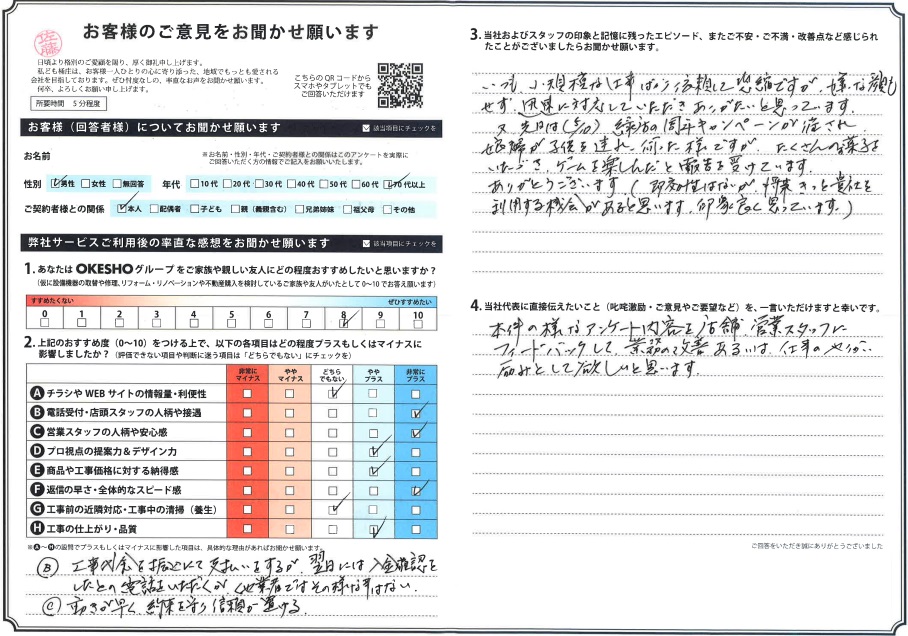 佐藤
お客様のご意見をお聞かせ願います
日頃より格別のご愛顧を賜り、厚く御礼申し上げます。
私ども桶庄は、お客様一人ひとりの心に寄り添った、地域でもっとも愛される
会社を目指しております。ぜひ忖度なしの、率直なお声をお聞かせ願います。
何卒、よろしくお願い申し上げます。
所要時間 5分程度
こちらのQRコードから
スマホやタブレットでも
ご回答いただけます
お客様（回答者様）についてお聞かせ願います
該当項目にチェックを
お名前
※お名前・性別・年代・ご契約者様との関係はこのアンケートを実際に
ご回答いただいた方の情報でご記入をお願いいたします。
性別 男性 女性 無回答 年代 10代 20代 30代 40代 50代 60代 70代以上
ご契約者様との関係 本人 配偶者 子ども 親（義親含む） 兄弟姉妹 祖父母 その他
弊社サービスご利用後の率直な感想をお聞かせ願います
該当項目にチェックを
1. あなたは OKESHOグループをご家族や親しい友人にどの程度おすすめしたいと思いますか？
（仮に設備機器の取替や修理、リフォーム・リノベーションや不動産購入を検討しているご家族や友人がいたとして0〜10でお答え願います）
すすめたくない ぜひすすめたい
0 1 2 3 4 5 6 7 8 9 10
2. 上記のおすすめ度（0〜10）をつける上で、以下の各項目はどの程度プラスもしくはマイナスに
影響しましたか？（評価できない項目や判断に迷う項目は「どちらでもない」にチェックを）
非常に マイナス やや マイナス どちら でもない やや プラス 非常に プラス
A チラシやWEBサイトの情報量・利便性
B 電話受付・店頭スタッフの人柄や接遇
C 営業スタッフの人柄や安心感
D プロ視点の提案力＆デザイン力
E 商品や工事価格に対する納得感
F 返信の早さ・全体的なスピード感
G 工事前の近隣対応・工事中の清掃（養生）
H 工事の仕上がり・品質
※A〜Hの設問でプラスもしくはマイナスに影響した項目は、具体的な理由があればお聞かせ願います。
B 工事代金を振込にて支払いをするが、翌日には入金確認を
したとの電話をいただくが、他業者ではその様な事はない。
C 動きが早く、約束を守り信頼が置ける。
3. 当社およびスタッフの印象と記憶に残ったエピソード、またご不安・ご不満・改善点など感じられ
たことがございましたらお聞かせ願います。
いつも小規模な仕事ばかり依頼して恐縮ですが、嫌な顔も
せず、迅速に対応していただきありがたいと思っています。
又先日は(5/10) 緑店の周年キャンペーンが催され
娘婦が子供を連れ、伺った様ですが、たくさんの菓子を
いただき、ゲームを楽しんだと報告を受けています。
ありがとうございます（即効性はないが、将来きっと貴社を
利用する機会があると思います。印象良く思っています。）
4. 当社代表に直接伝えたいこと（叱咤激励・ご意見やご要望など）を、一言いただけますと幸いです。
本件の様なアンケート内容を店舗、営業スタッフに
フィードバックして、業務の改善あるいは、仕事のやりがい
励みとして欲しいと思います。
ご回答をいただき誠にありがとうございました